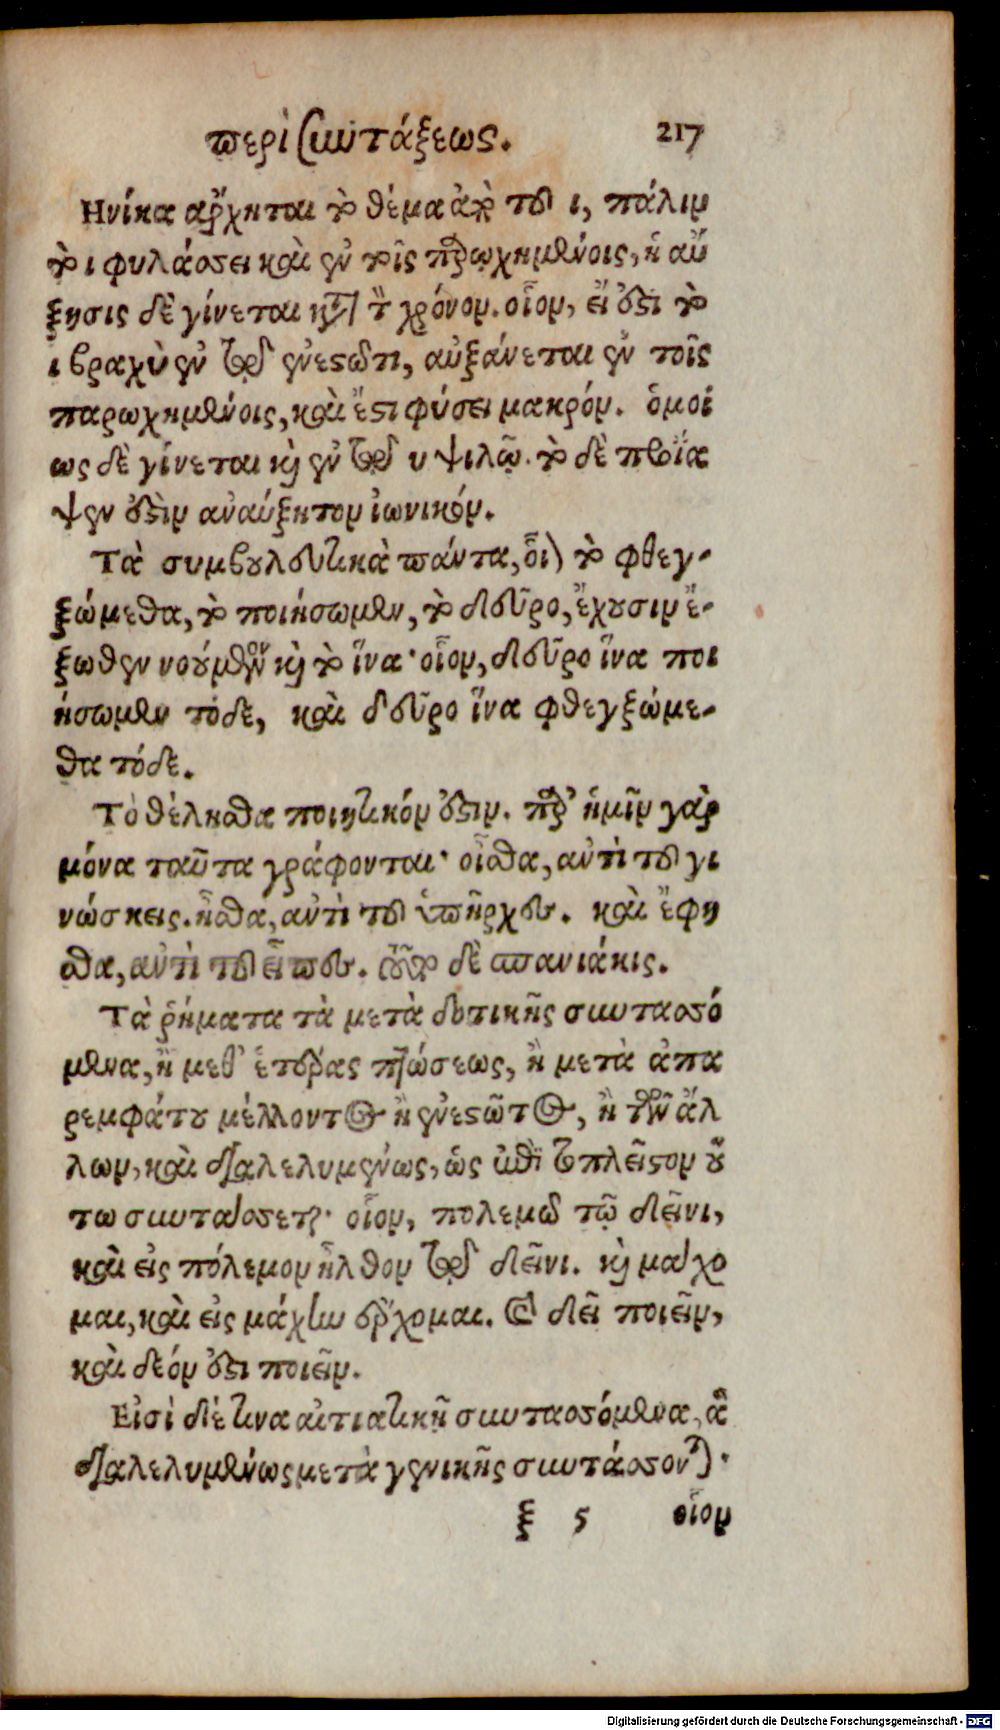 περὶ συντάξεως. 217
Ηνίκα ἄρχηται τὸ θέμα ἀπὸ τοῦ ι, πάλιν
τὸ ι φυλάσσει καὶ ἐν τοῖς παρῳχημένοις, ἡ αὔ
ξησις δὲ γίνεται κατὰ τὸν χρόνον. οἷον, εἴ ἐστι τὸ
ι βραχὺ ἐν τῷ ἐνεστῶτι, αὐξάνεται ἐν τοῖς
παρῳχημένοις, καὶ ἔστι φύσει μακρόν. ὁμοί
ως δὲ γίνεται καὶ ἐν τῷ υ ψιλῷ. τὸ δὲ
ψεν ἐστὶν ἀναύξητον ἰωνικόν.
Τὰ συμβουλευτικὰ πάντα, οἷον τὸ φθεγ-
ξώμεθα, τὸ ποιήσωμεν, τὸ δεῦρο, ἔχουσιν ἔ-
ξωθεν νοούμενον καὶ τὸ ἵνα· οἷον, δεῦρο ἵνα ποι
ήσωμεν τόδε, καὶ δεῦρο ἵνα φθεγξώμε-
θα τόδε.
Τὸ θέλησθα ποιητικόν ἐστιν. παρ' ἡμῖν γὰρ
μόνα ταῦτα γράφονται· οἶσθα, ἀντὶ τοῦ γι
νώσκεις. ἦσθα, ἀντὶ τοῦ ὑπῆρχες. καὶ ἔφη
σθα, ἀντὶ τοῦ εἶπες. δὲ σπανιάκις.
Τὰ ῥήματα τὰ μετὰ δοτικῆς συντασσό
μενα, ἢ μεθ' ἑτέρας πτώσεως, ἢ μετὰ ἀπα
ρεμφάτου μέλλοντος ἢ ἐνεστῶτος, ἢ τῶν ἄλ
λων, καὶ διαλελυμένως, ὡς ἐπὶ τὸ πλεῖστον οὕ
τω συντάσσεται· οἷον, πολεμῶ τῷ δεῖνι,
καὶ εἰς πόλεμον ἦλθον τῷ δεῖνι. καὶ μάχο
μαι, καὶ εἰς μάχην ἔρχομαι. καὶ δεῖ ποιεῖν,
καὶ δέον ἐστὶ ποιεῖν.
Εἰσὶ δέ τινα αἰτιατικῇ συντασσόμενα, ἃ
διαλελυμένως μετὰ γενικῆς συντάσσονται·
ξ 5 οἷον
Digitalisierung gefördert durch die Deutsche Forschungsgemeinschaft - DFG